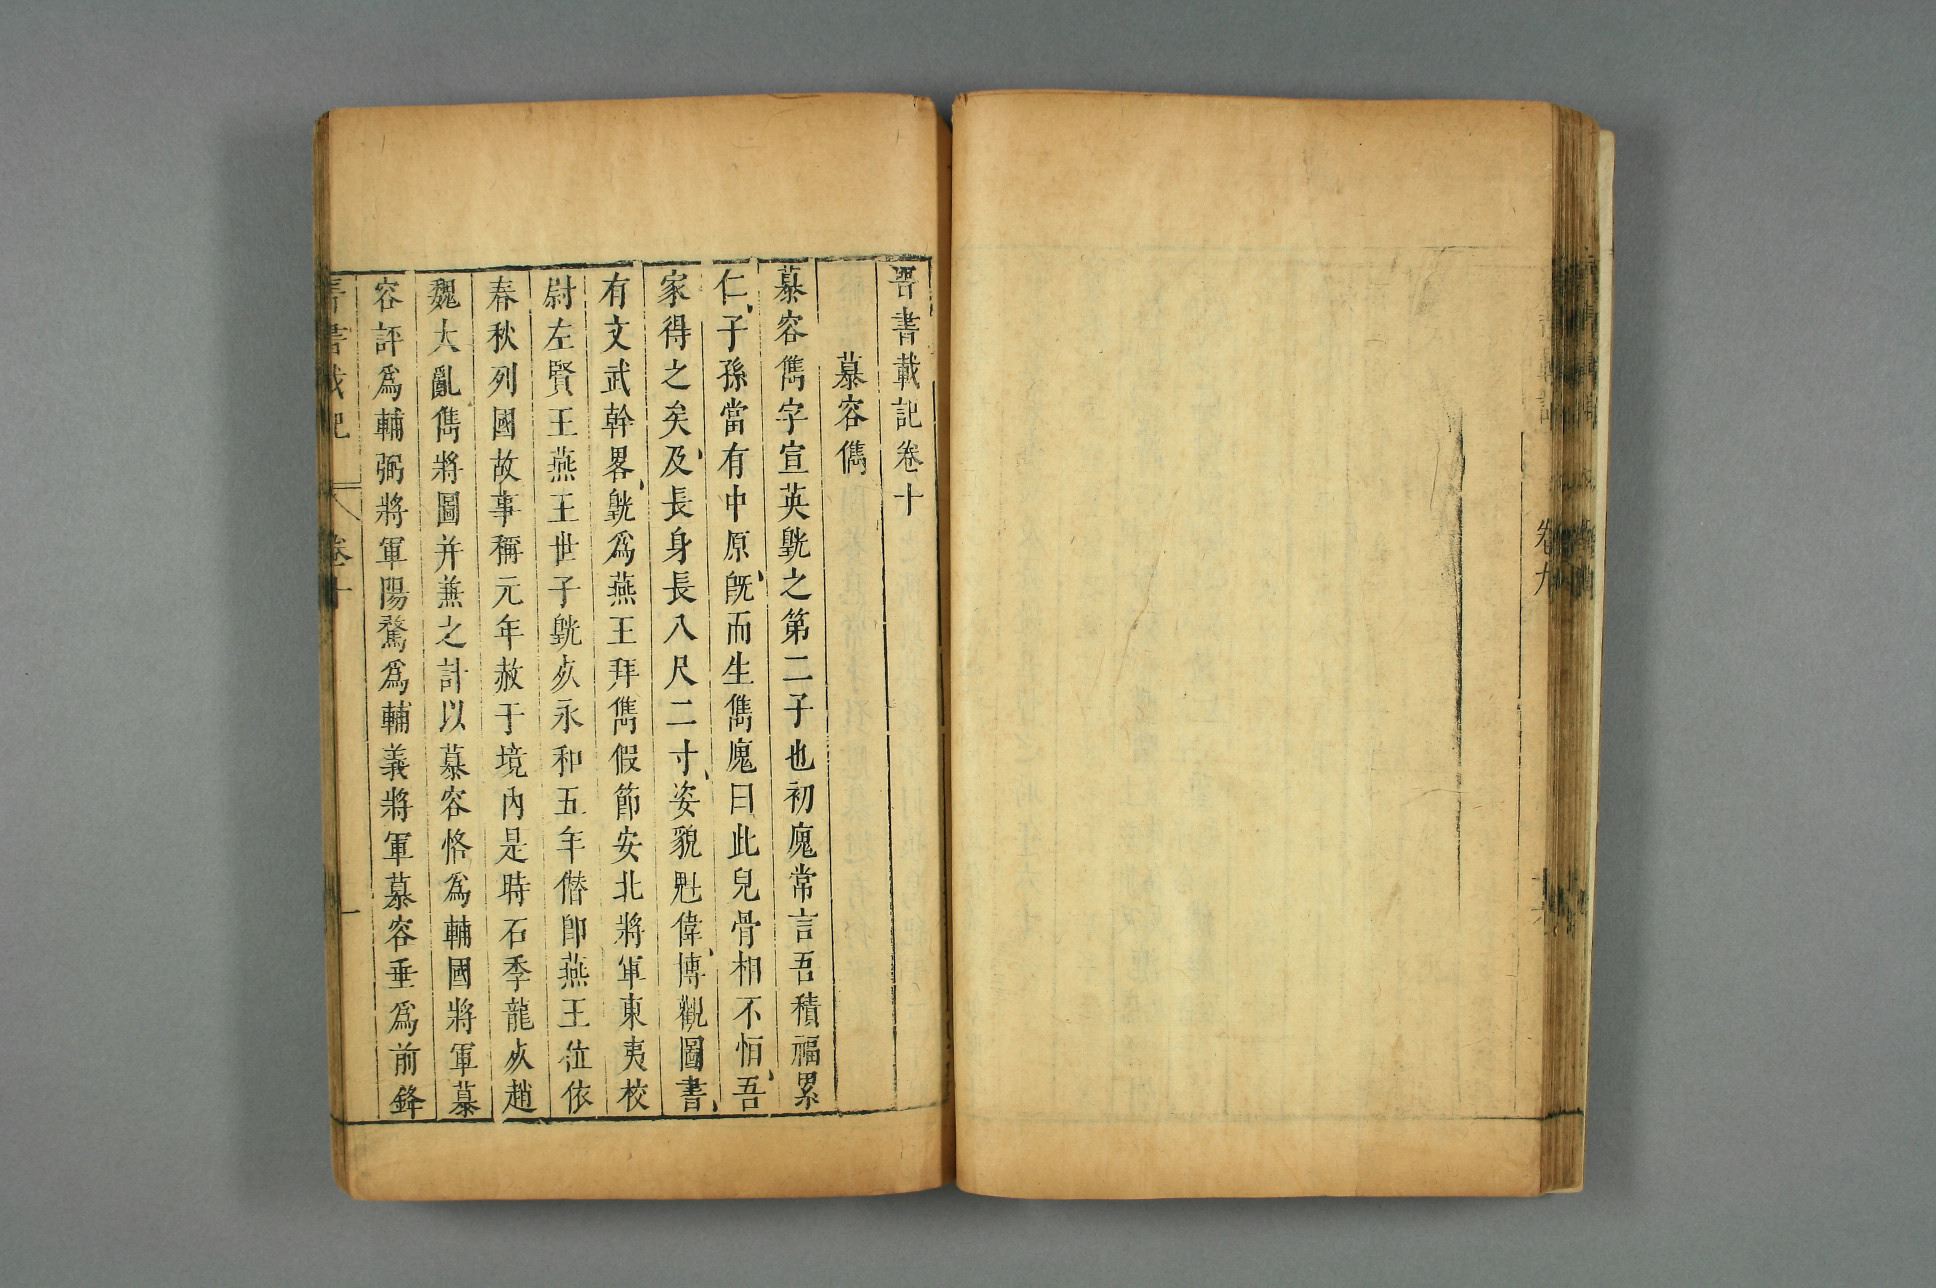 卷九
晉書載記卷十
慕容儁
慕容儁字宣英皝之第二子也初廆常言吾積福累
仁子孫當有中原旣而生儁廆曰此兒骨相不恒吾
家得之矣及長身長八尺二寸姿貌魁偉博觀圖書
有文武幹畧皝爲燕王拜儁假節安北將軍東夷校
尉左賢王燕王世子皝死永和五年僣卽燕王位依
春秋列國故事稱元年赦于境內是時石季龍死趙
魏大亂儁將圖并兼之計以慕容恪爲輔國將軍慕
容評爲輔弼將軍陽騖爲輔義將軍慕容垂爲前鋒
晉書載記 卷十 一